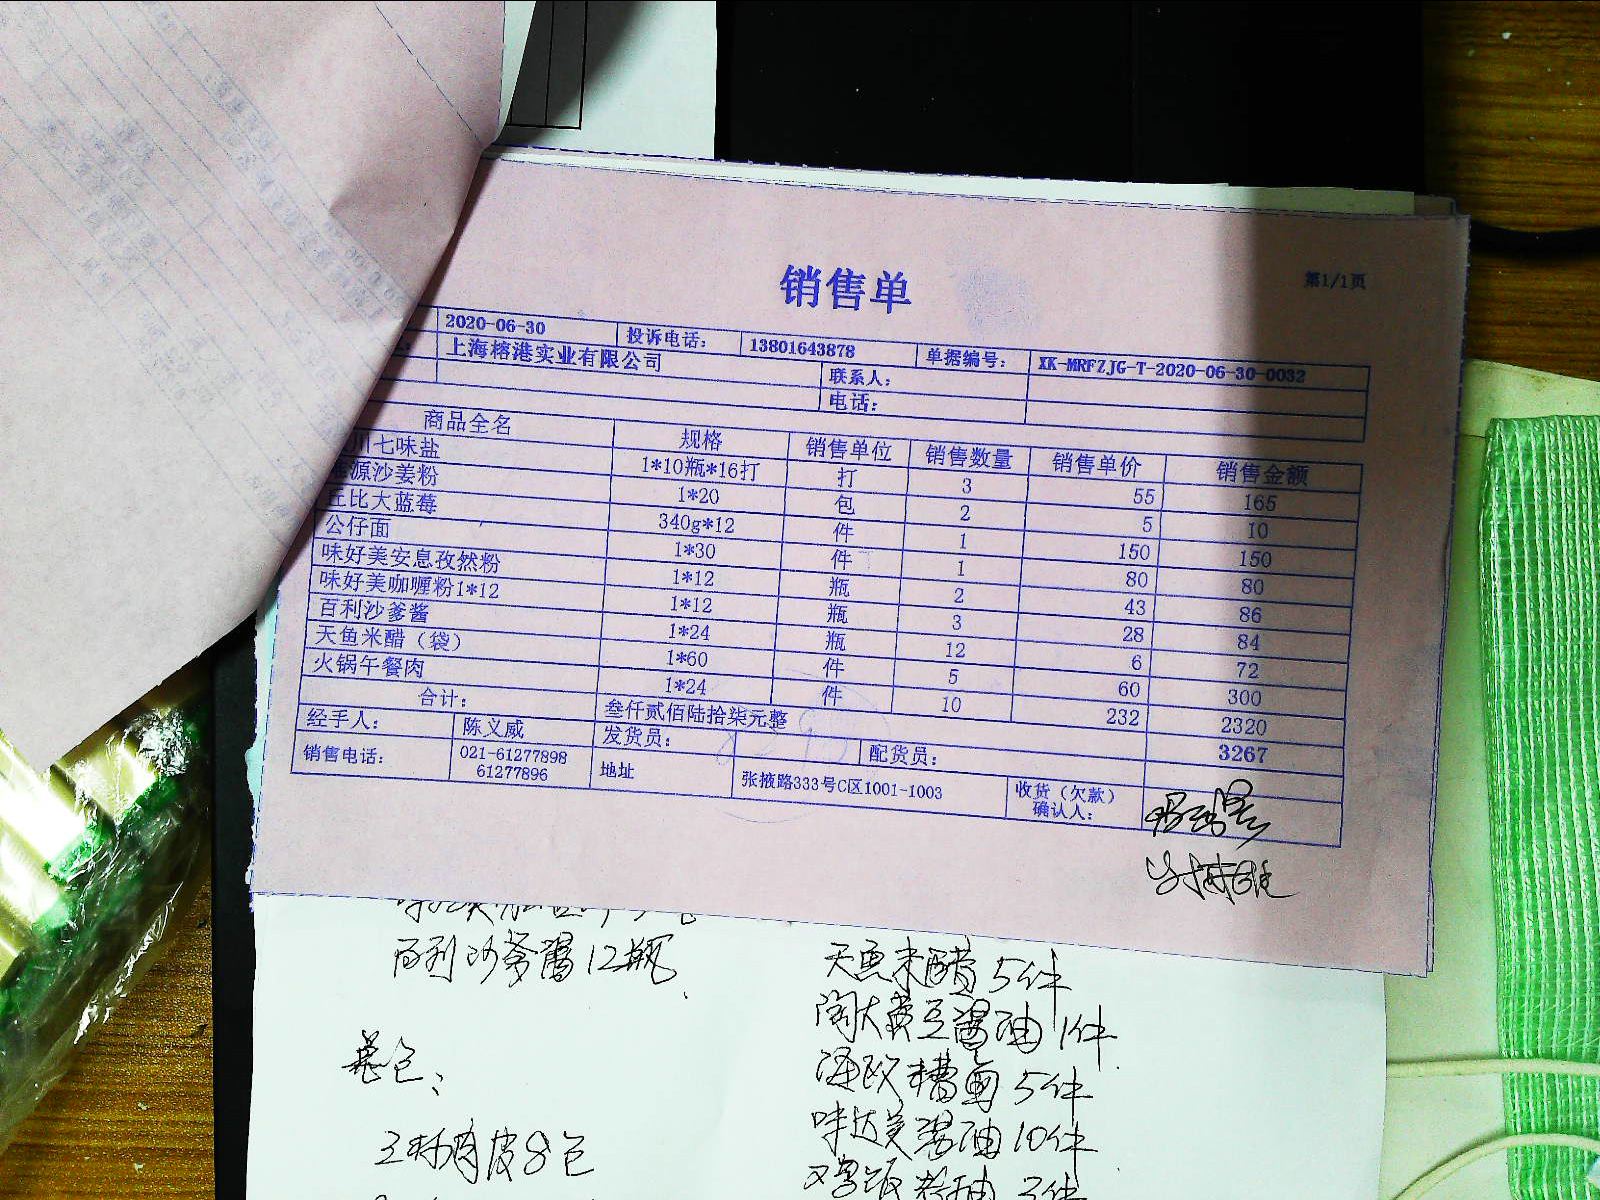 销售单
第1/1页
2020-06-30 投诉电话： 13801643878 单据编号： XK-MRFZJG-T-2020-06-30-0032
上海榕港实业有限公司
联系人：
电话：
商品全名 规格 销售单位 销售数量 销售单价 销售金额
川七味盐 1*10瓶*16打 打 3 55 165
源沙姜粉 1*20 包 2 5 10
丘比大蓝莓 340g*12 件 1 150 150
公仔面 1*30 件 1 80 80
味好美安息孜然粉 1*12 瓶 2 43 86
味好美咖喱粉1*12 1*12 瓶 3 28 84
百利沙爹酱 1*24 瓶 12 6 72
天鱼米醋（袋） 1*60 件 5 60 300
火锅午餐肉 1*24 件 10 232 2320
合计： 叁仟贰佰陆拾柒元整 3267
经手人： 陈义威 发货员： 配货员：
销售电话： 021-61277898 61277896 地址 张掖路333号C区1001-1003 收货（欠款）确认人：
百利沙爹酱12瓶
天鱼米醋5件
陶大黄豆酱油1件
糟卤5件
味达美酱油10件
皮8包